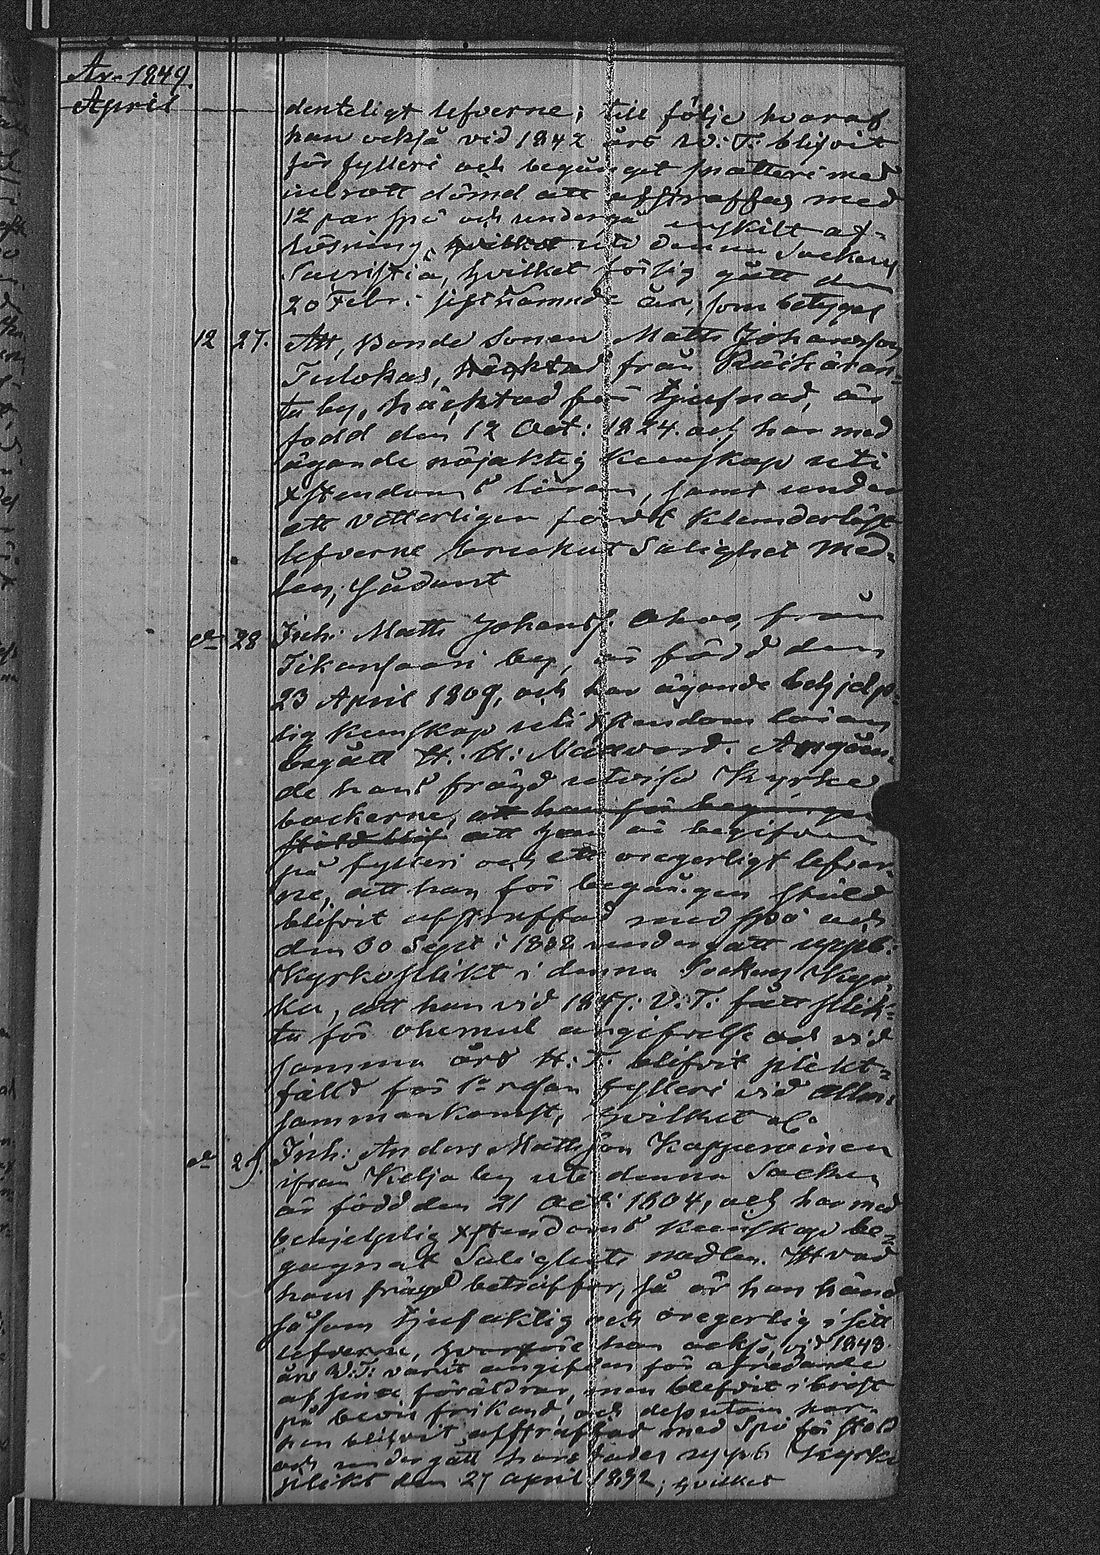 År 1849.
April
dentligt lefverne; till följe hvaraf
han också vid 1842 års W: T: blifvit
för fylleri och begånget snatteri med
inbrott dömd att afstraffas med
12 par spö och undergå enskilt af-
lösning, uti denna Sockens
Sacristia, hvilket försig gått den
20 Febr: sistnämnde år, som betygas
12 27. Att, Bonde Sonen Matts Johansson
Tulokas, från Räihäran-
ta by, häcktad för tjufnad, är
född den 12 Oct: 1824. och har med
ägande nöjaktig kunskap uti
Xstendoms läran, samt under
ett vetterligen fördt klanderlöst
lefverne brukat Salighet med-
len, Sådant
do 28 Inh: Matts Johanss: Ahvo, från
Tikansaari by, är född den
23 April 1809, och har ägande behjelp-
lig kunskap uti Xstendoms läran
begått H. H: Nattvard. Angåen-
de hans frägd utvisa Kyrko
böckerne, att han för begången
stöld blif att han är begifven
på fylleri och ett oregerligt lefver-
ne, att han för begången stöld
blifvit afstraffad med spö och
den 30 Sept: 1832 undergått uppb:
Kyrkoplikt i denna Sockens Kyr-
ka, att han vid 1847. V: T: fått plik-
ta för ohemul angifvelse och vid
samma års H: T. blifvit plikt-
fälld för 1a resan fylleri vid allm:
sammankomst, hvilket &c
do 29. Inh: Anders Mattsson Kapperoinen
ifrån Kelja by uti denna Socken
är född den 21 Oct: 1804, och har med
behjelplig Xstendoms kunskap be-
gagnat Salighets medlen. Hvad
hans frägd beträffar, så är han känd
såsom tjufaktig och oregerlig i sitt
lefverne, hvarföre han också vid 1843
års V: T: varit angifven för
af sina föräldrar, men blefvit i brist
på bevis frikänd, och dessutom har
han blifvit afstraffad med Spö för stöld
och undergått uppb Kyrko
plikt den 27 April 1832; hvilket